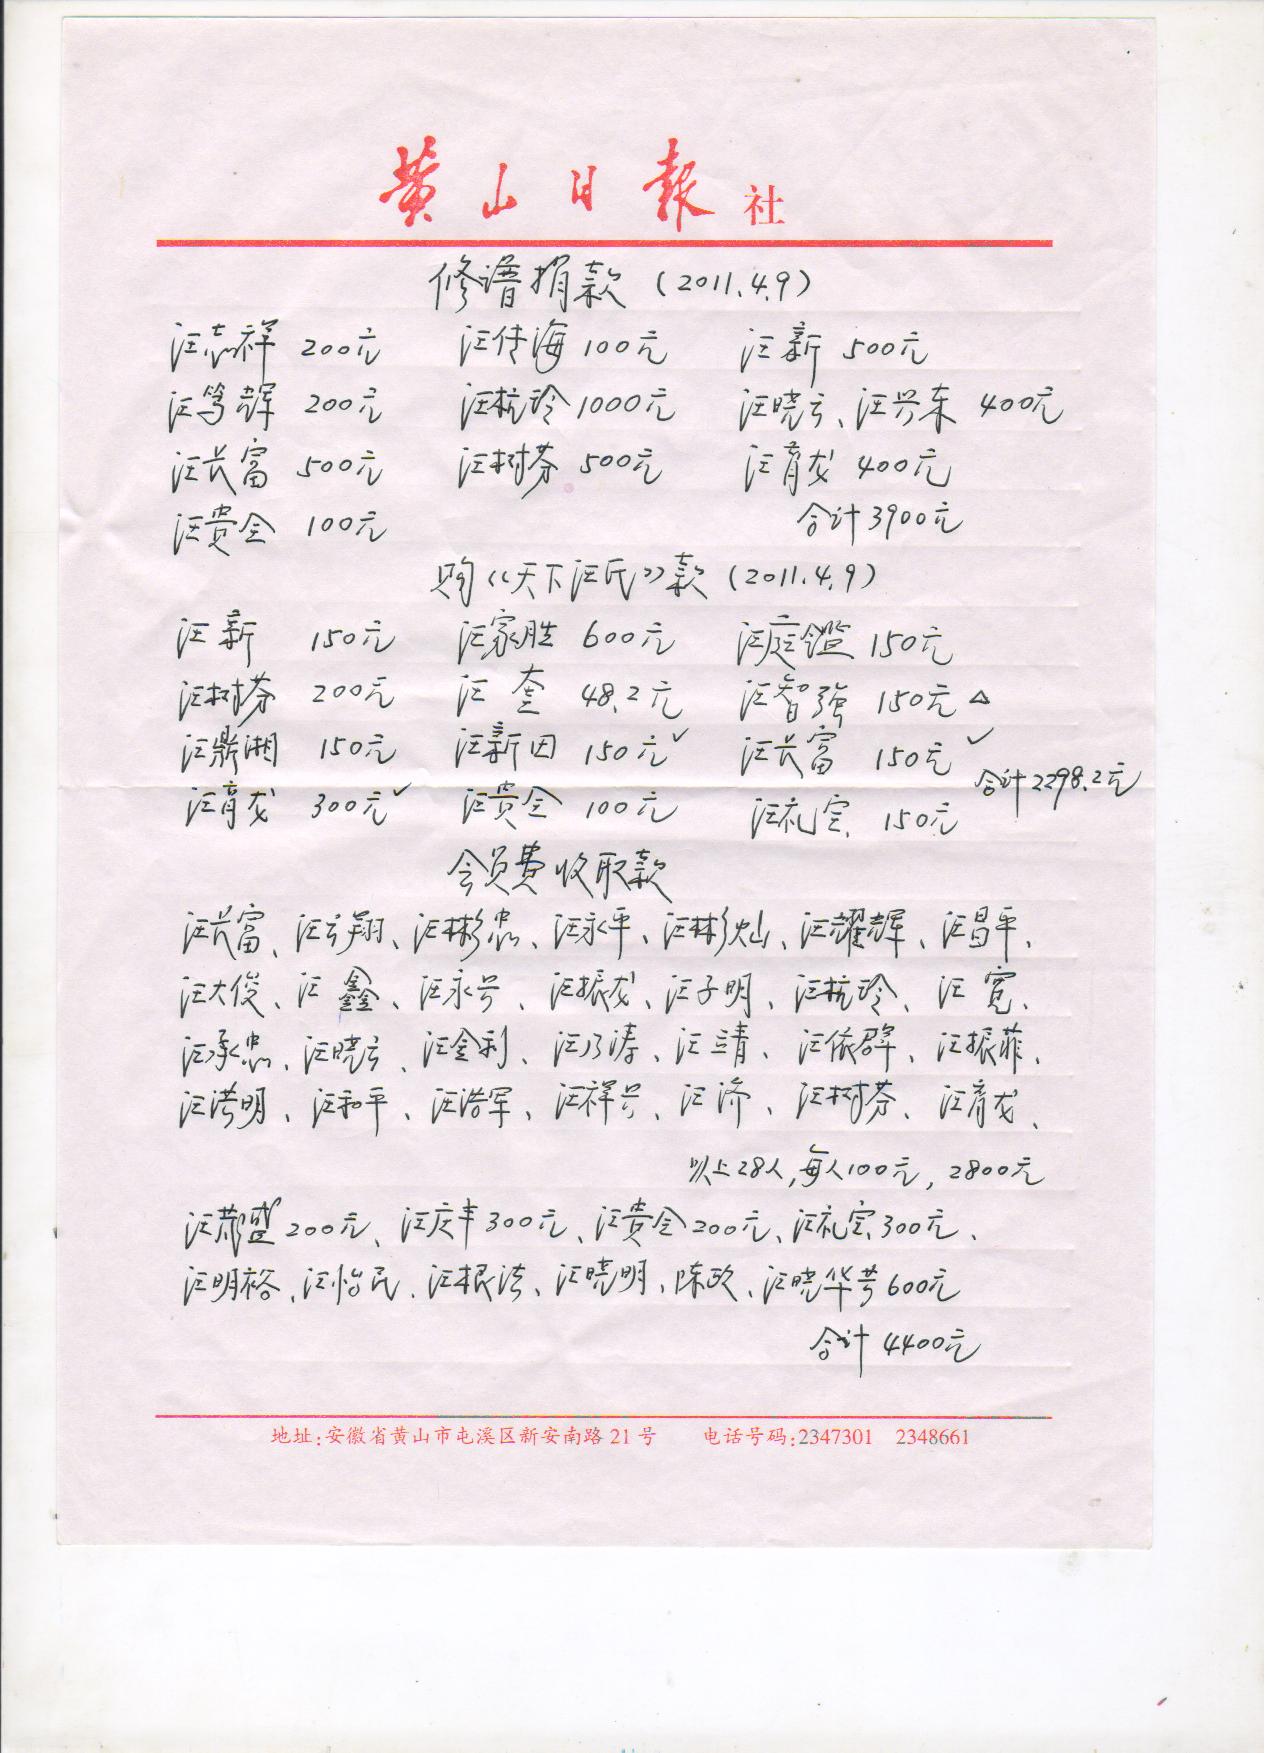 黄山日報社
修谱捐款（2011.4.9）
汪志祥 200元 汪传海 100元 汪新 500元
汪笃辉 200元 汪杭玲 1000元 汪晓云、汪兴东 400元
汪长富 500元 汪树芬 500元 汪育龙 400元
汪贵全 100元 合计3900元
购《天下汪氏》款（2011.4.9）
汪新 150元 汪家胜 600元 汪庭鑑 150元
汪树芬 200元 汪奎 48.2元 汪智强 150元△
汪鼎湘 150元 汪新田 150元✓ 汪长富 150元✓
合计2298.2元
汪育龙 300元✓ 汪贵全 100元 汪礼定 150元
会员费收取款
汪长富、汪云翔、汪彬忠、汪永平、汪彬灿、汪耀辉、汪昌平、
汪大俊、汪鑫、汪永号、汪振龙、汪子明、汪杭玲、汪宽、
汪承忠、汪晓云、汪金利、汪乃涛、汪立靖、汪依群、汪振菲、
汪洪明、汪和平、汪浩军、汪祥兴、汪济、汪树芬、汪育龙、
以上28人，每人100元，2800元
汪 200元、汪庆丰300元、汪贵全200元、汪礼定300元、
汪明裕、汪怡民、汪根法、汪晓明、陈政、汪晓华等600元
合计 4400元
地址:安徽省黄山市屯溪区新安南路21号 电话号码:2347301 2348661